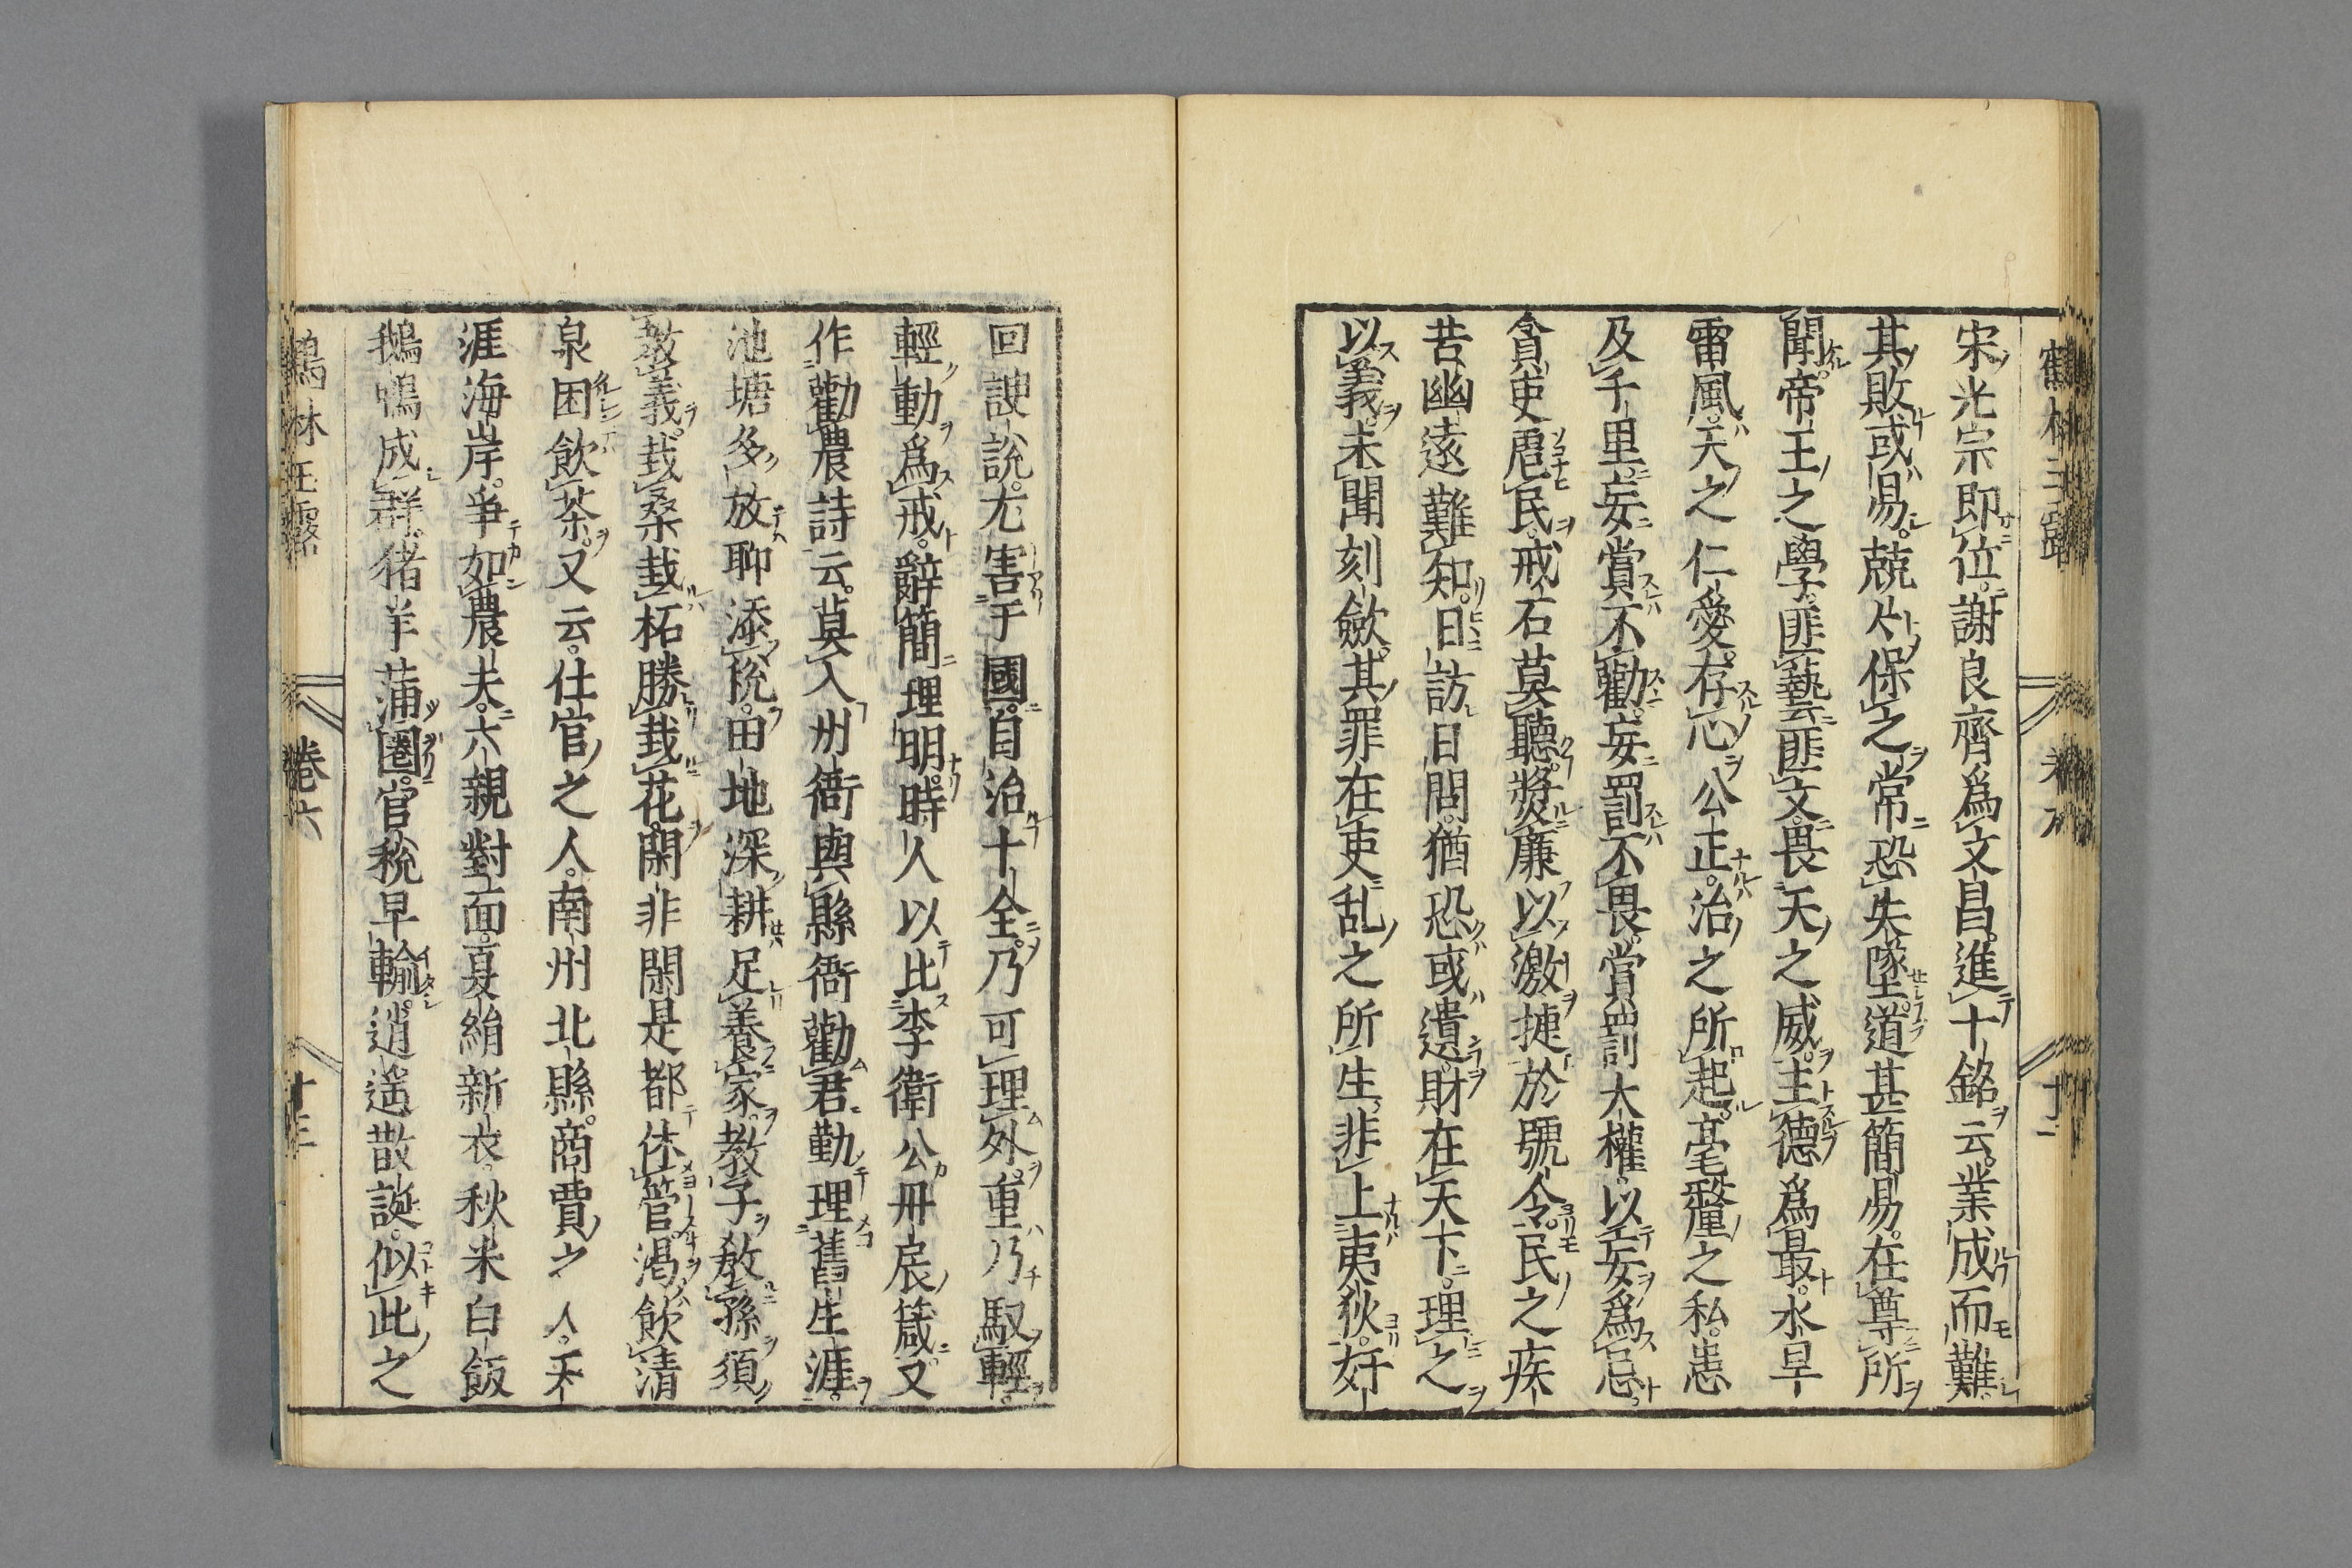 宋光宗即位。謝良齊爲文昌。進十銘云。業成而難。
其敗或易。兢片保之常恐失墜。道甚簡易。在尊所
聞。帝王之學。匪藝匪文。畏天之威。主德爲最。水旱
雷風。天之仁愛。存心公正。治之所起。毫釐之私。患
及千里。妄賞不勸。妄罰不畏。賞罰大權。以妄爲忌。
貪吏虐民。戒石莫聽。奬廉以激。捷於號令。民之疾
苦。幽遠難知。日訪日問。猶恐或遺。財在天下。理之
以義。未聞刻歛。其罪在吏。乱之所生。非上夷狄。奸
回諛說。尤害于國。自治十全。乃可理外。重乃馭輕。
輕動爲戒。辭簡理明。時人以比李衛公丹扆箴。又
作勸農詩云。莫入州衙與縣衙。勸君勤理舊生涯。
池塘多放聊添稅。田地深耕足養家。教子教孫須
教義。栽桑栽柘勝栽花。閑非閑是都休管。渴飲清
泉困飲茶。又云。仕官之人。南州北縣。商賈之人。天
涯海岸。爭如農夫。六親對面。夏絹新衣。秋米白飯
鵝鴨成群。猪羊蒲圈。官税早輸。逍遥散誕。似此之
鶴林玉露
卷六
十三